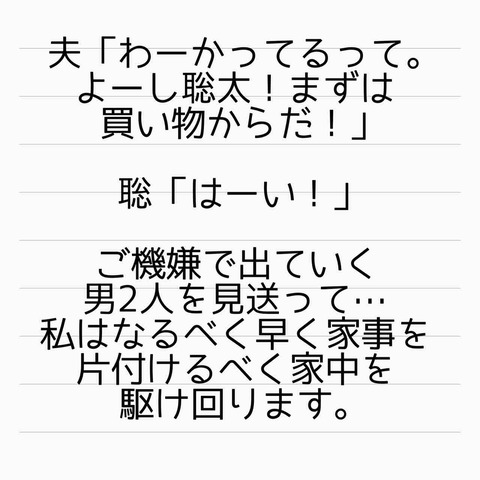 夫「わーかってるって。
よーし聡太！まずは
買い物からだ！」
聡「はーい！」
ご機嫌で出ていく
男2人を見送って…
私はなるべく早く家事を
片付けるべく家中を
駆け回ります。